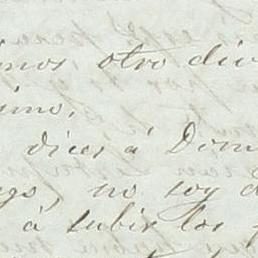 imos otro div
imo.
dices á Dom
go, no soy d
á subir los